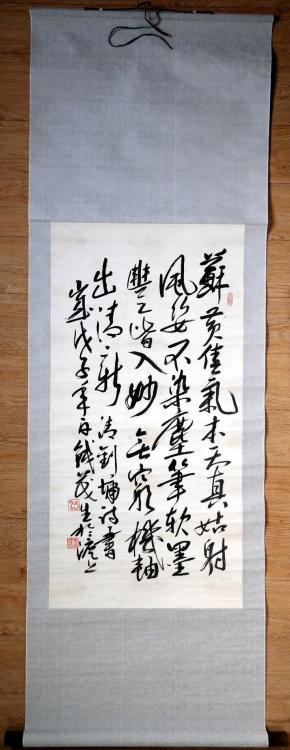 蘇黃佳氣本天真姑射
風姿不染塵筆軟墨
豐皆入妙無窮機軸
出清新 清劉墉詩書
歲戊子年錢茂生於滬上